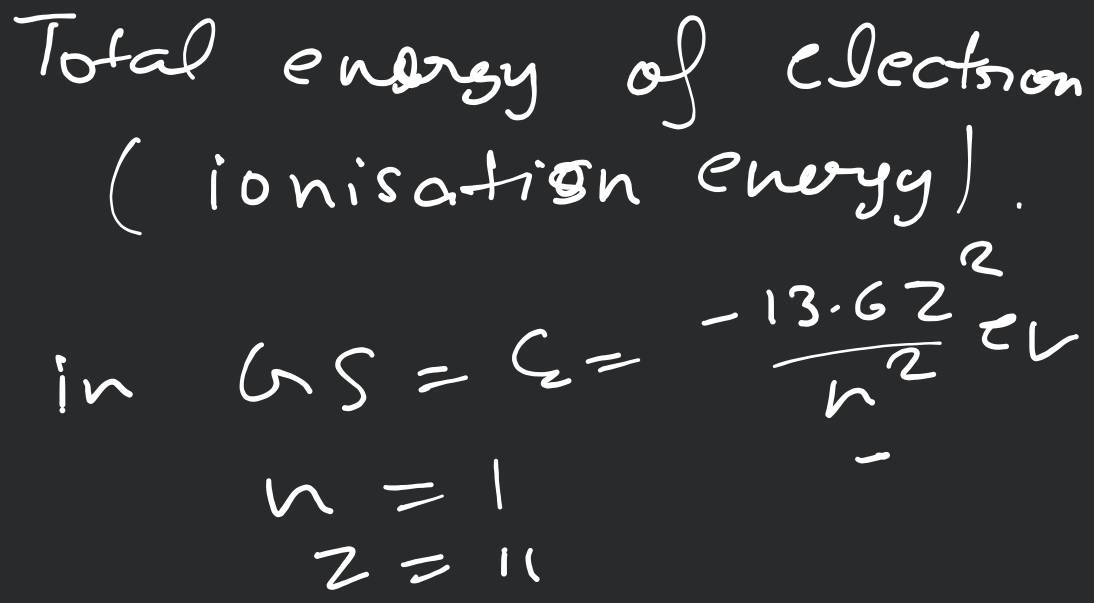 Total energy of electron
( ionisation energy) .
in GS = E = -13.6Z²/n² eV
n = 1
Z = 11